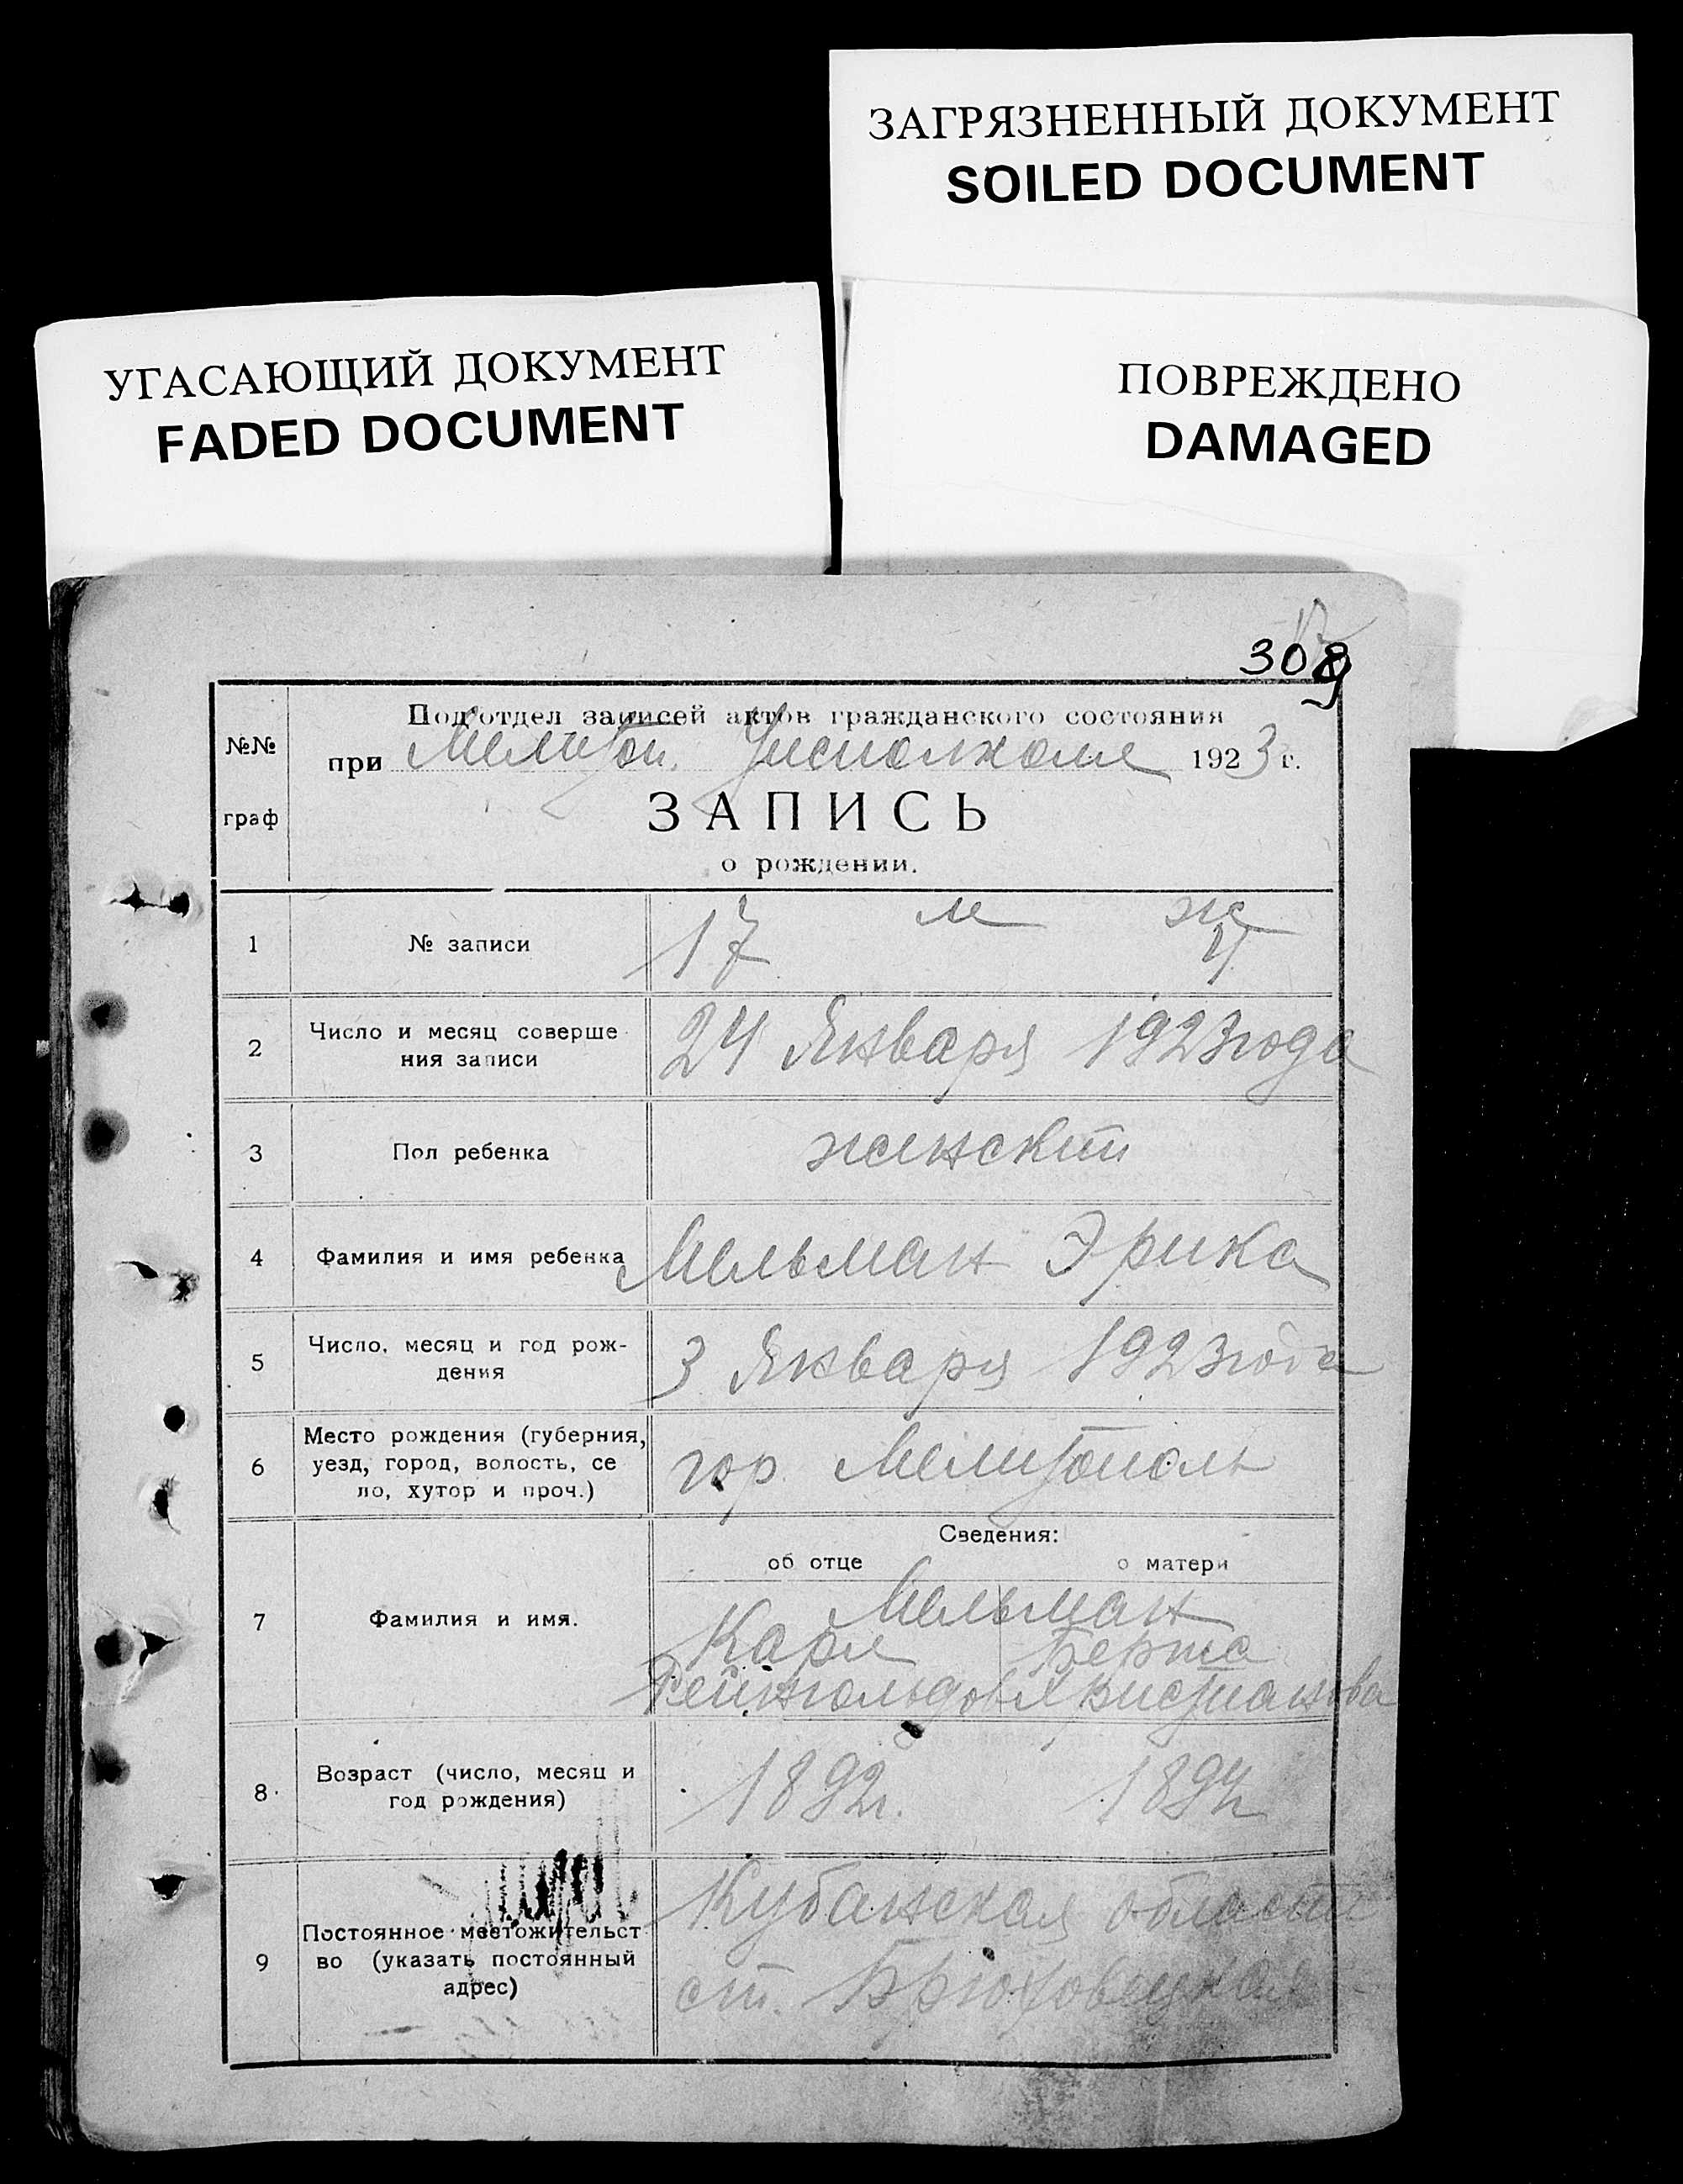 ЗАГРЯЗНЕННЫЙ ДОКУМЕНТ
SOILED DOCUMENT
УГАСАЮЩИЙ ДОКУМЕНТ
FADED DOCUMENT
ПОВРЕЖДЕНО
DAMAGED
№№
граф
Под'отдел записей актов гражданского состояния
при Мелитоп. Уисполкоме 1923 г.
ЗАПИСЬ
о рождении.
м ж
1 № записи 17
2 Число и месяц соверше
ния записи
24 Января 1923 года
3 Пол ребенка женский
4 Фамилия и имя ребенка Мельман Эрика
5 Число, месяц и год рож-
дения
3 Января 1923 года
6 Место рождения (губерния,
уезд, город, волость, се
ло, хутор и проч.)
гор. Мелитополь
Сведения:
об отце о матери
7 Фамилия и имя.
Мельман
Карл Берта
Рейнгольдов Христианова
8 Возраст (число, месяц и
год рождения)
1892г. 1894г
9 Постоянное местожительст
во (указать постоянный
адрес)
Кубанская область
ст. Брюховецкая